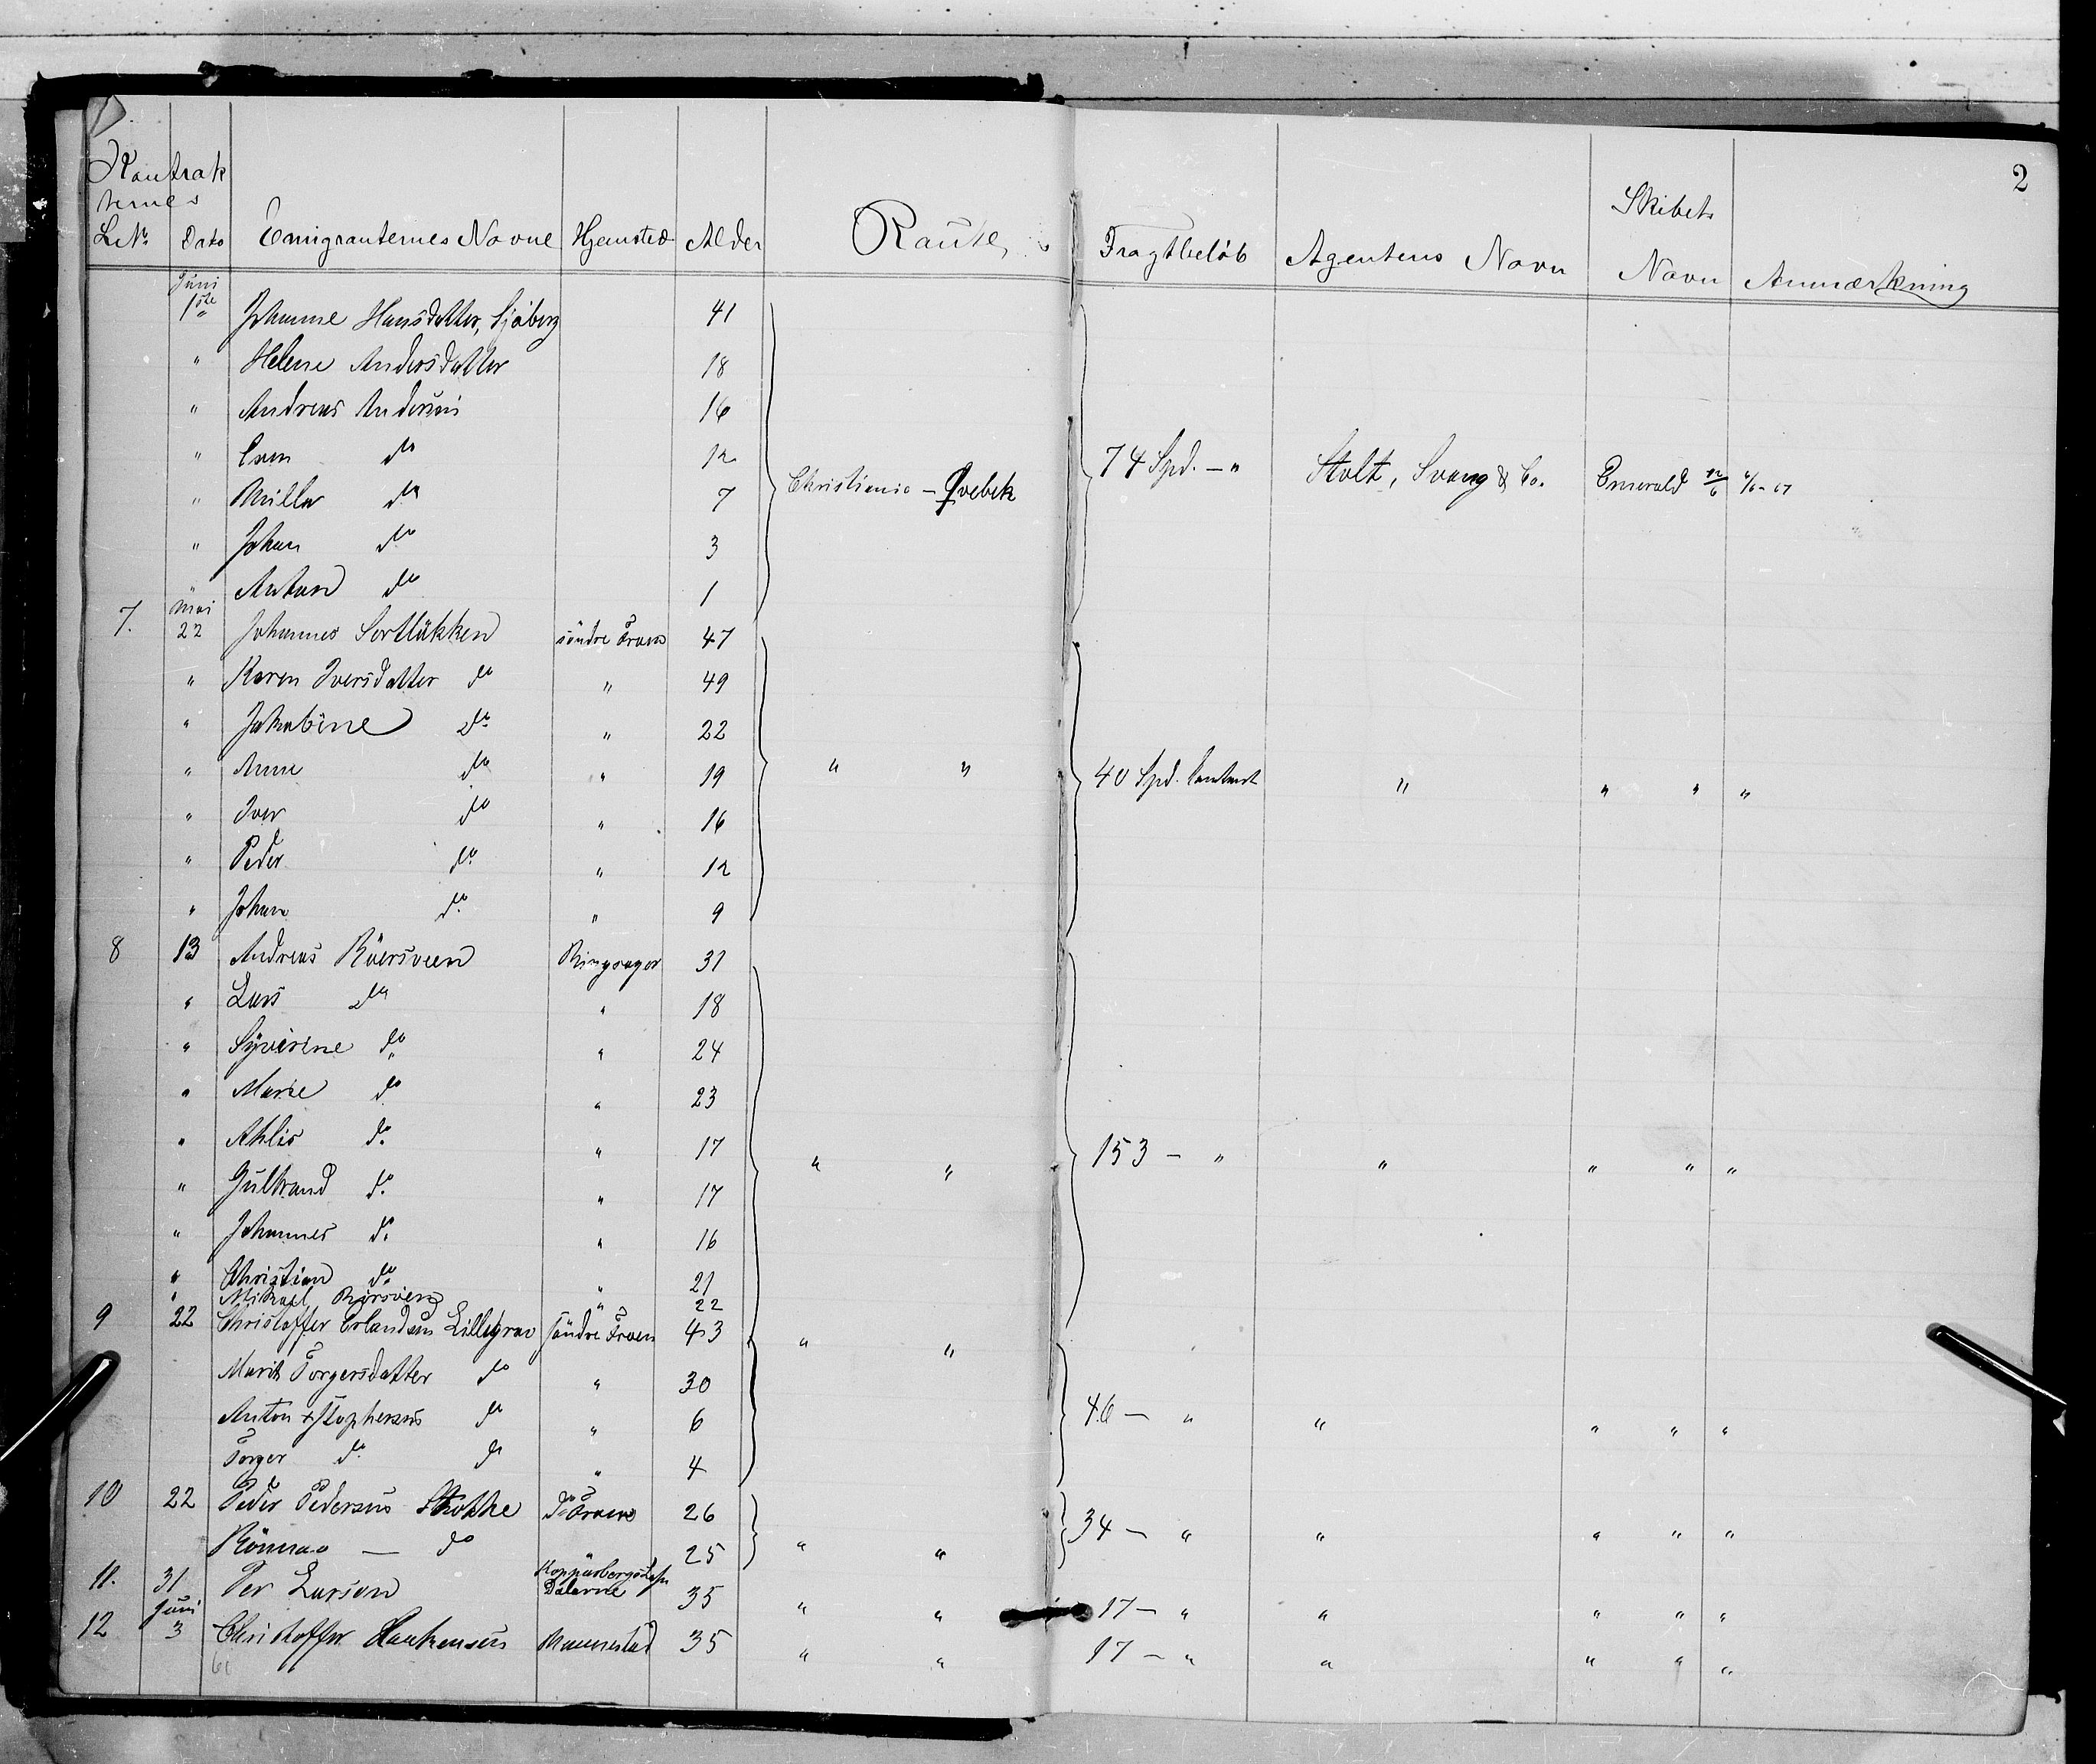 2
Kontrak
ternes
L.No Dato Emigranternes Navne Hjemsted Alder Route Fragtbeløb Agentens Navn Skibets Navn Anmærkning
Juni
1ste Johanne Hansdatter, Sjøberg 41
" Helene Andersdatter 18
" Andreas Andersen 16
" Even do 12
" Milla do 7 Christiania - Qvebek 74 Spd. - " Stolt, Svang & Co. Emerald 12/6
" Johan do 3
" Anton do 1
7. Mai 22 Johannes Sortløkken söndre Froen 47
" Karen Iversdatter do " 49
" Jakobine do " 22
" Anne do " 19 " " 40 Spd. " " " "
" Iver do " 16
" Peder do " 12
" Johan do " 9
8 13 Andreas Rüersveen Ringsager 31
" Lars do " 18
" Syverine do " 24
" Marie do " 23
" do " 17 " " 153 - " " " " "
" Gulbrand do " 17
" Johannes do " 16
" Christian do " 21
" Mikael " 22
9 22 Christoffer Erlandsen söndre Froen 43 " "
Marit Torgersdatter do " 30
Anton do " 6 46 - " " " " "
Torger do do " 4
10 22 Peder Pedersen do Froen 26 34 - " " " " "
do 25 " "
11. 31 Per Larson Koppårbergs Län Dalarne 35 " " 17 - " " " " "
12 Juni 3 Christoffer 35 " " 17 - " " " " "